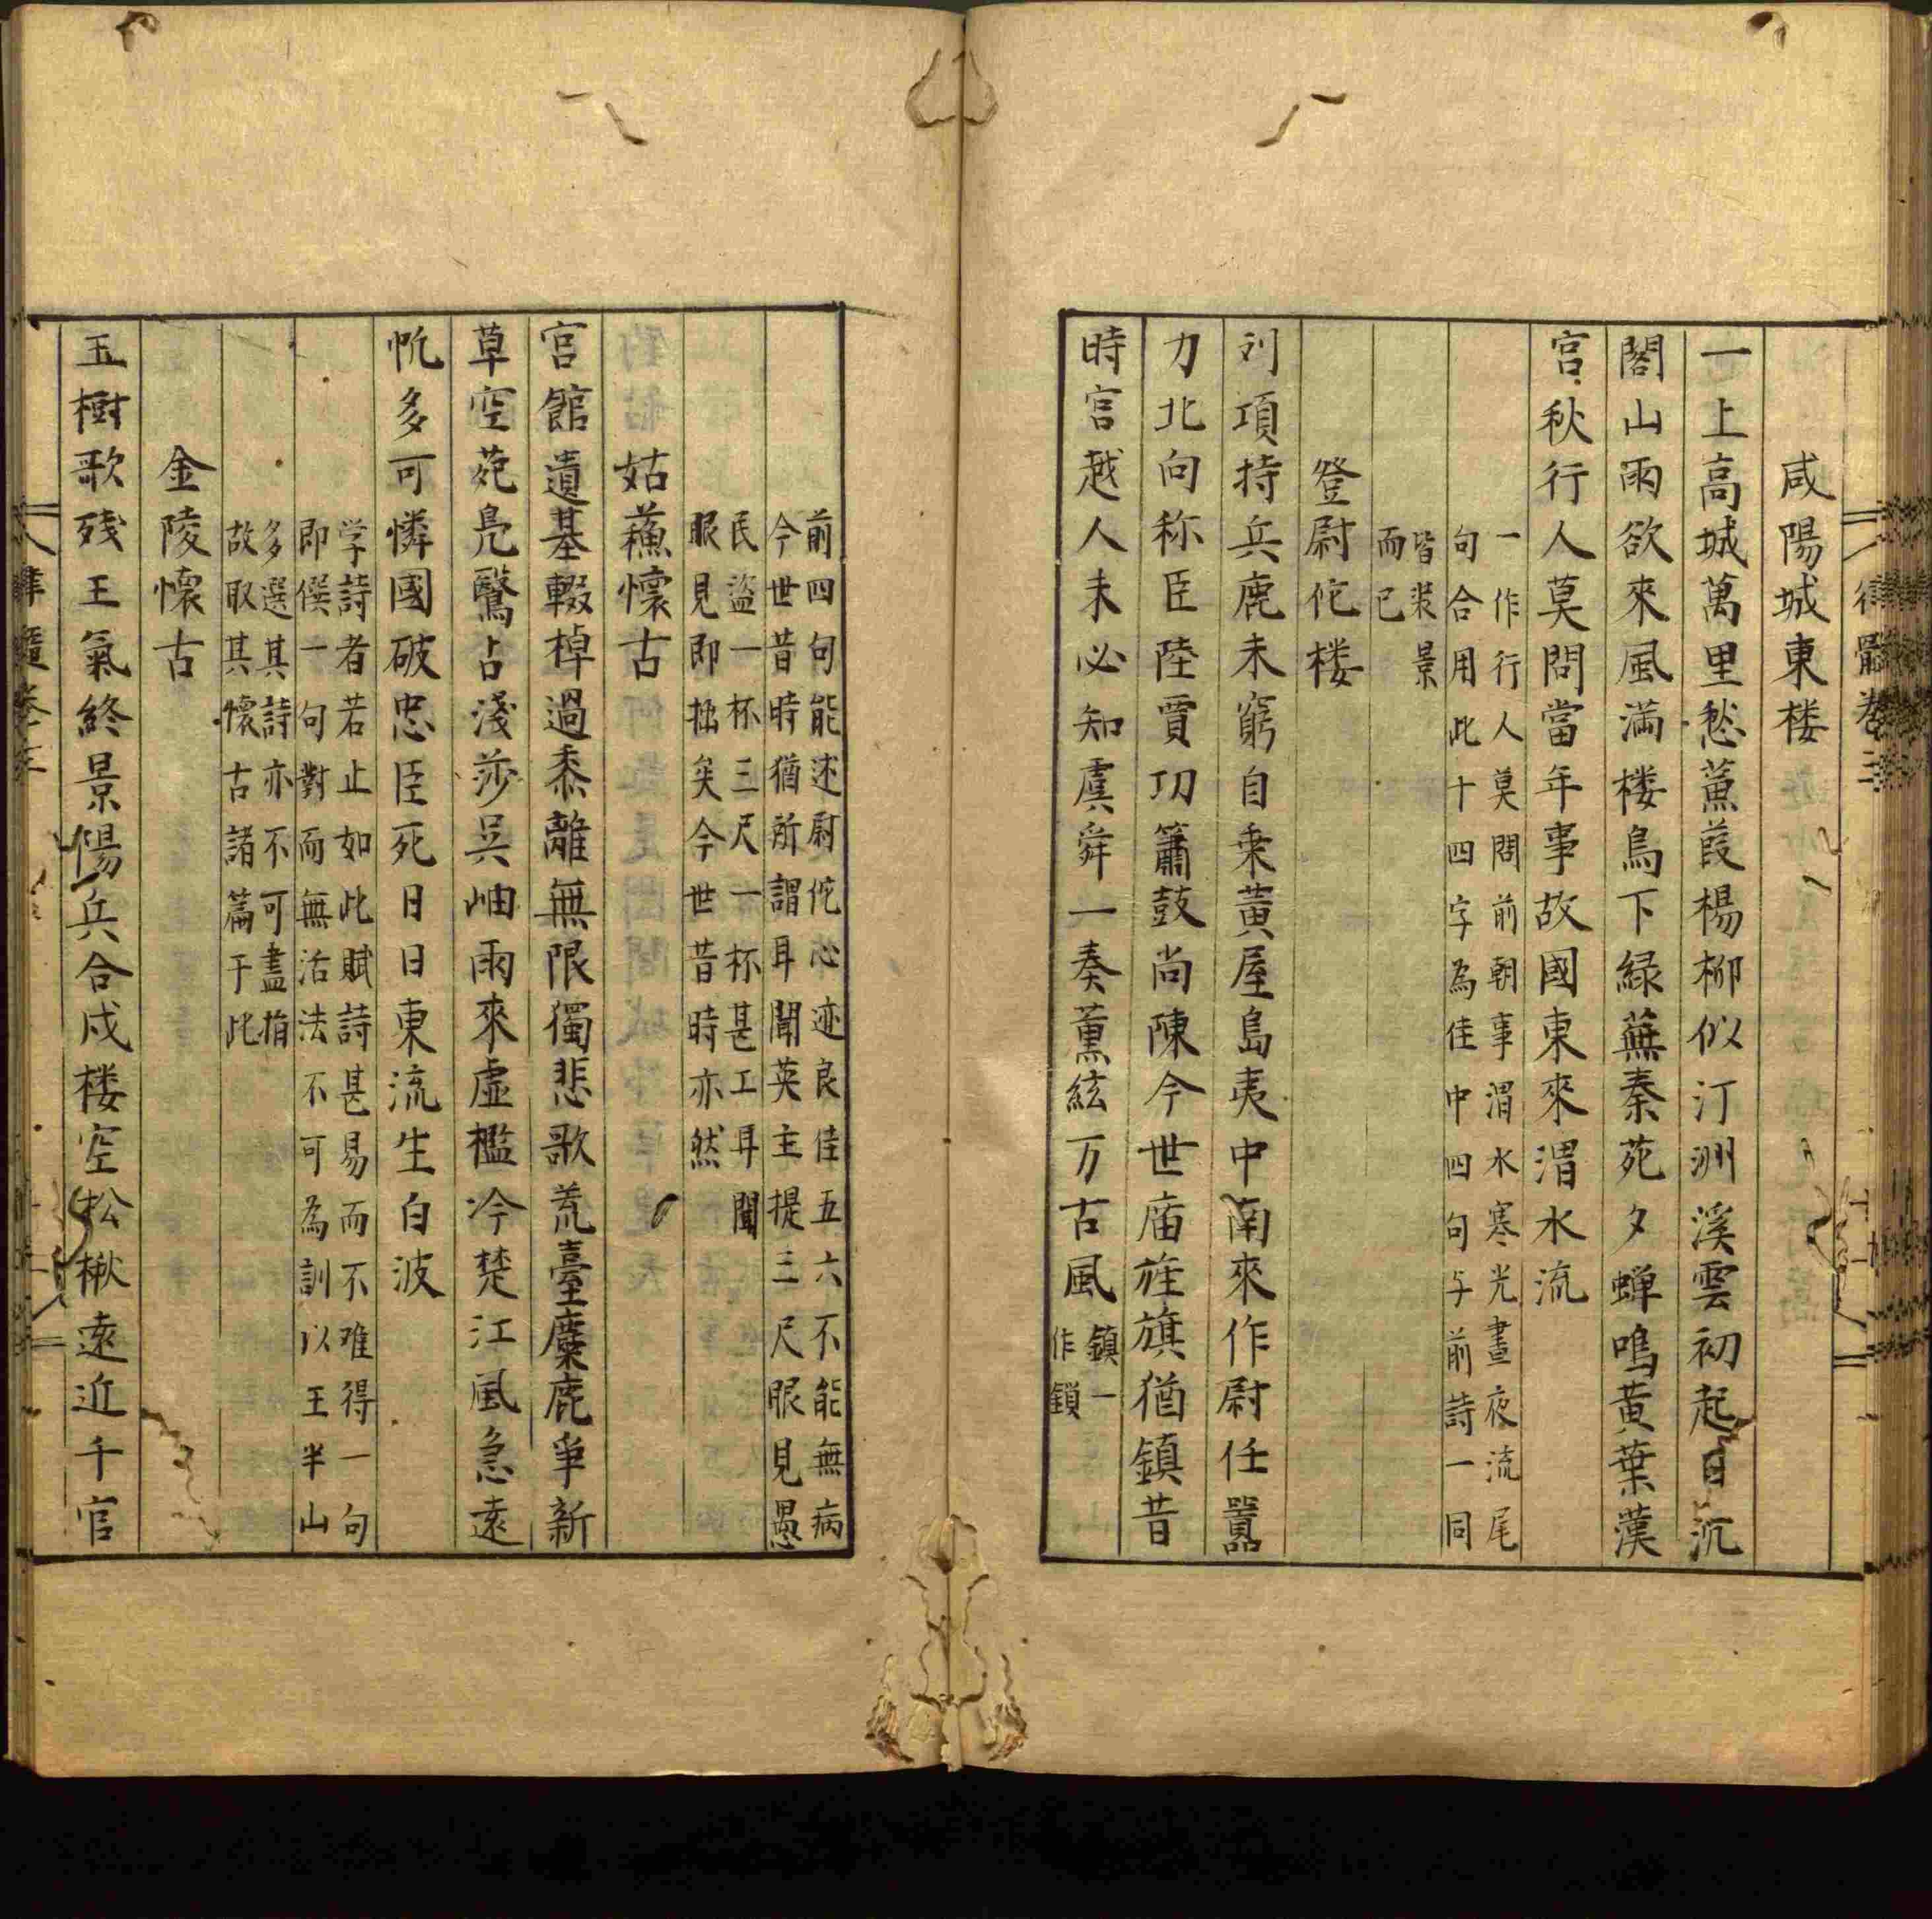 律髓卷三
咸陽城東楼
一上高城萬里愁蒹葭楊柳似汀洲溪雲初起日沉
閣山雨欲來風滿楼鳥下緑蕪秦苑夕蝉鳴黄葉漢
宫秋行人莫問當年事故國東來渭水流
一作行人莫問前朝事渭水寒光晝夜流尾
句合用此十四字為佳中四句与前詩一同
皆装景
而已
登尉佗楼
刘項持兵鹿未窮自乗黄屋島夷中南來作尉任嚣
力北向称臣陸賈功簫鼓尚陳今世庙旌旗猶鎮昔
時宫越人未必知虞舜一奏薫絃万古風
鎮一
作鎖
前四句能述尉佗心迹良佳五六不能無病
今世昔時猶所謂耳聞英主提三尺眼見愚
民盗一杯三尺一杯甚工耳聞
眼見即拙矣今世昔時亦然
姑蘓懷古
宫館遺基輟棹過黍離無限獨悲歌荒臺麋鹿争新
草空苑凫鷖占淺莎吴岫雨來虚檻冷楚江風急遠
帆多可憐國破忠臣死日日東流生白波
学詩者若止如此賦詩甚易而不难得一句
即僎一句對而無活法不可為訓以王半山
多選其詩亦不可盡捐
故取其懷古諸篇于此
金陵懷古
玉樹歌残王氣終景陽兵合戍楼空松楸遠近千官
律髓卷三